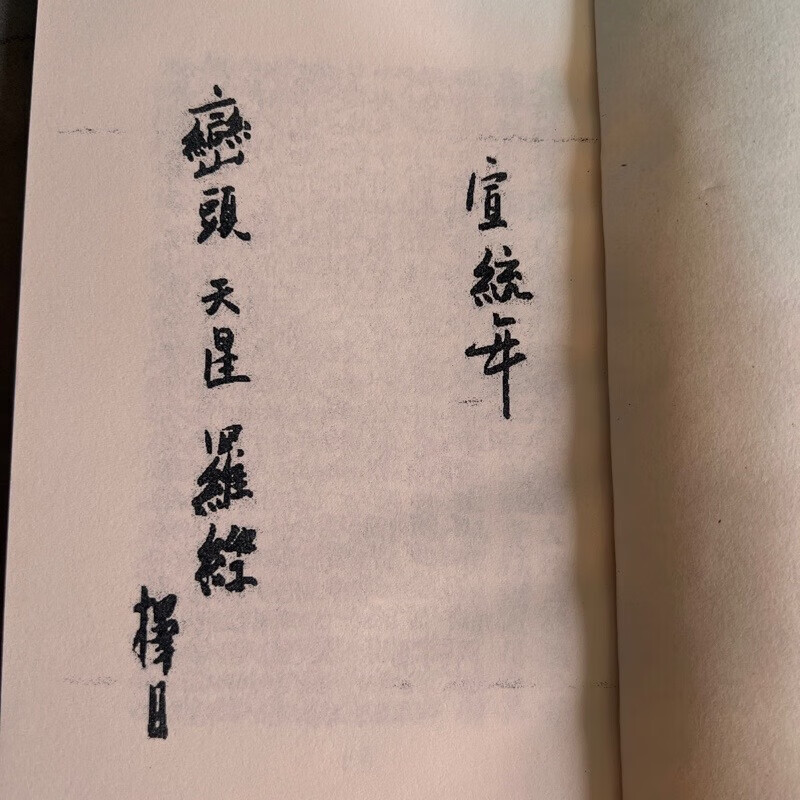 宣統年
巒頭 天星 羅經
擇日